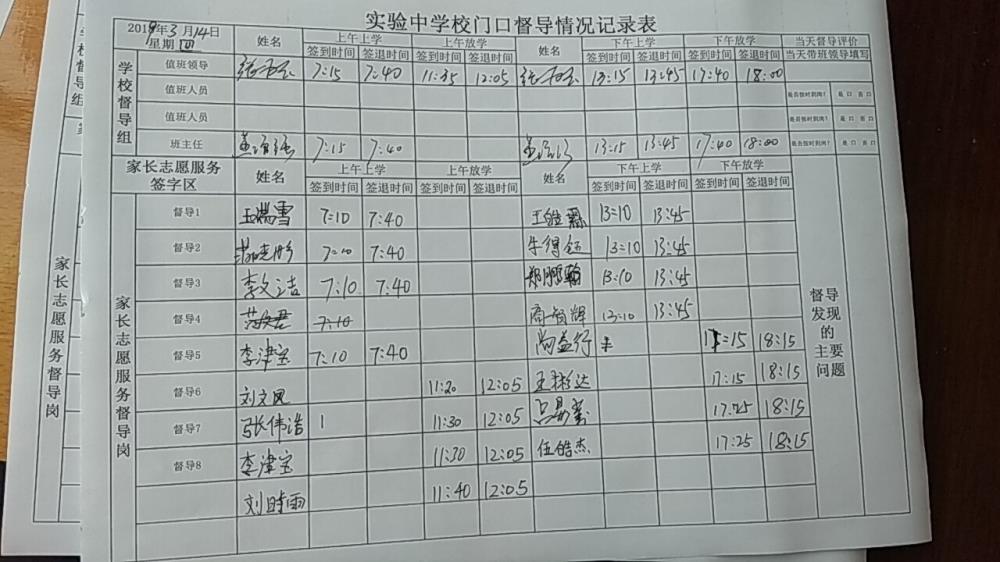 实验中学校门口督导情况记录表
2019年3月14日
星期 四
姓名 上午上学 上午放学 姓名 下午上学 下午放学 当天督导评价
签到时间 签退时间 签到时间 签退时间 签到时间 签退时间 签到时间 签退时间 当天带班领导填写
学校督导组
值班领导 7:15 7:40 11:35 12:05 13:15 13:45 17:40 18:00
值班人员 是否按时到岗? 是 口 否 口
值班人员 是否按时到岗? 是 口 否 口
班主任 7:15 7:40 13:15 13:45 17:40 18:00 是否按时到岗? 是 口 否 口
家长志愿服务
签字区
姓名 上午上学 上午放学 姓名 下午上学 下午放学
签到时间 签退时间 签到时间 签退时间 签到时间 签退时间 签到时间 签退时间
家长志愿服务督导岗
督导1 王瑞雪 7:10 7:40 13:10 13:45
督导2 7:10 7:40 牛得钰 13:10 13:45
督导3 李文洁 7:10 7:40 郑鹏翰 13:10 13:45
督导4 7:10 13:10 13:45
督导5 李津宝 7:10 7:40 尚益行 17:15 18:15
督导6 刘文凤 11:20 12:05 17:15 18:15
督导7 张伟浩 11:30 12:05 17:25 18:15
督导8 李津宝 11:30 12:05 伍皓杰 17:25 18:15
刘时雨 11:40 12:05
督导
发现
的
主要
问题
督导组
家长志愿服务督导岗